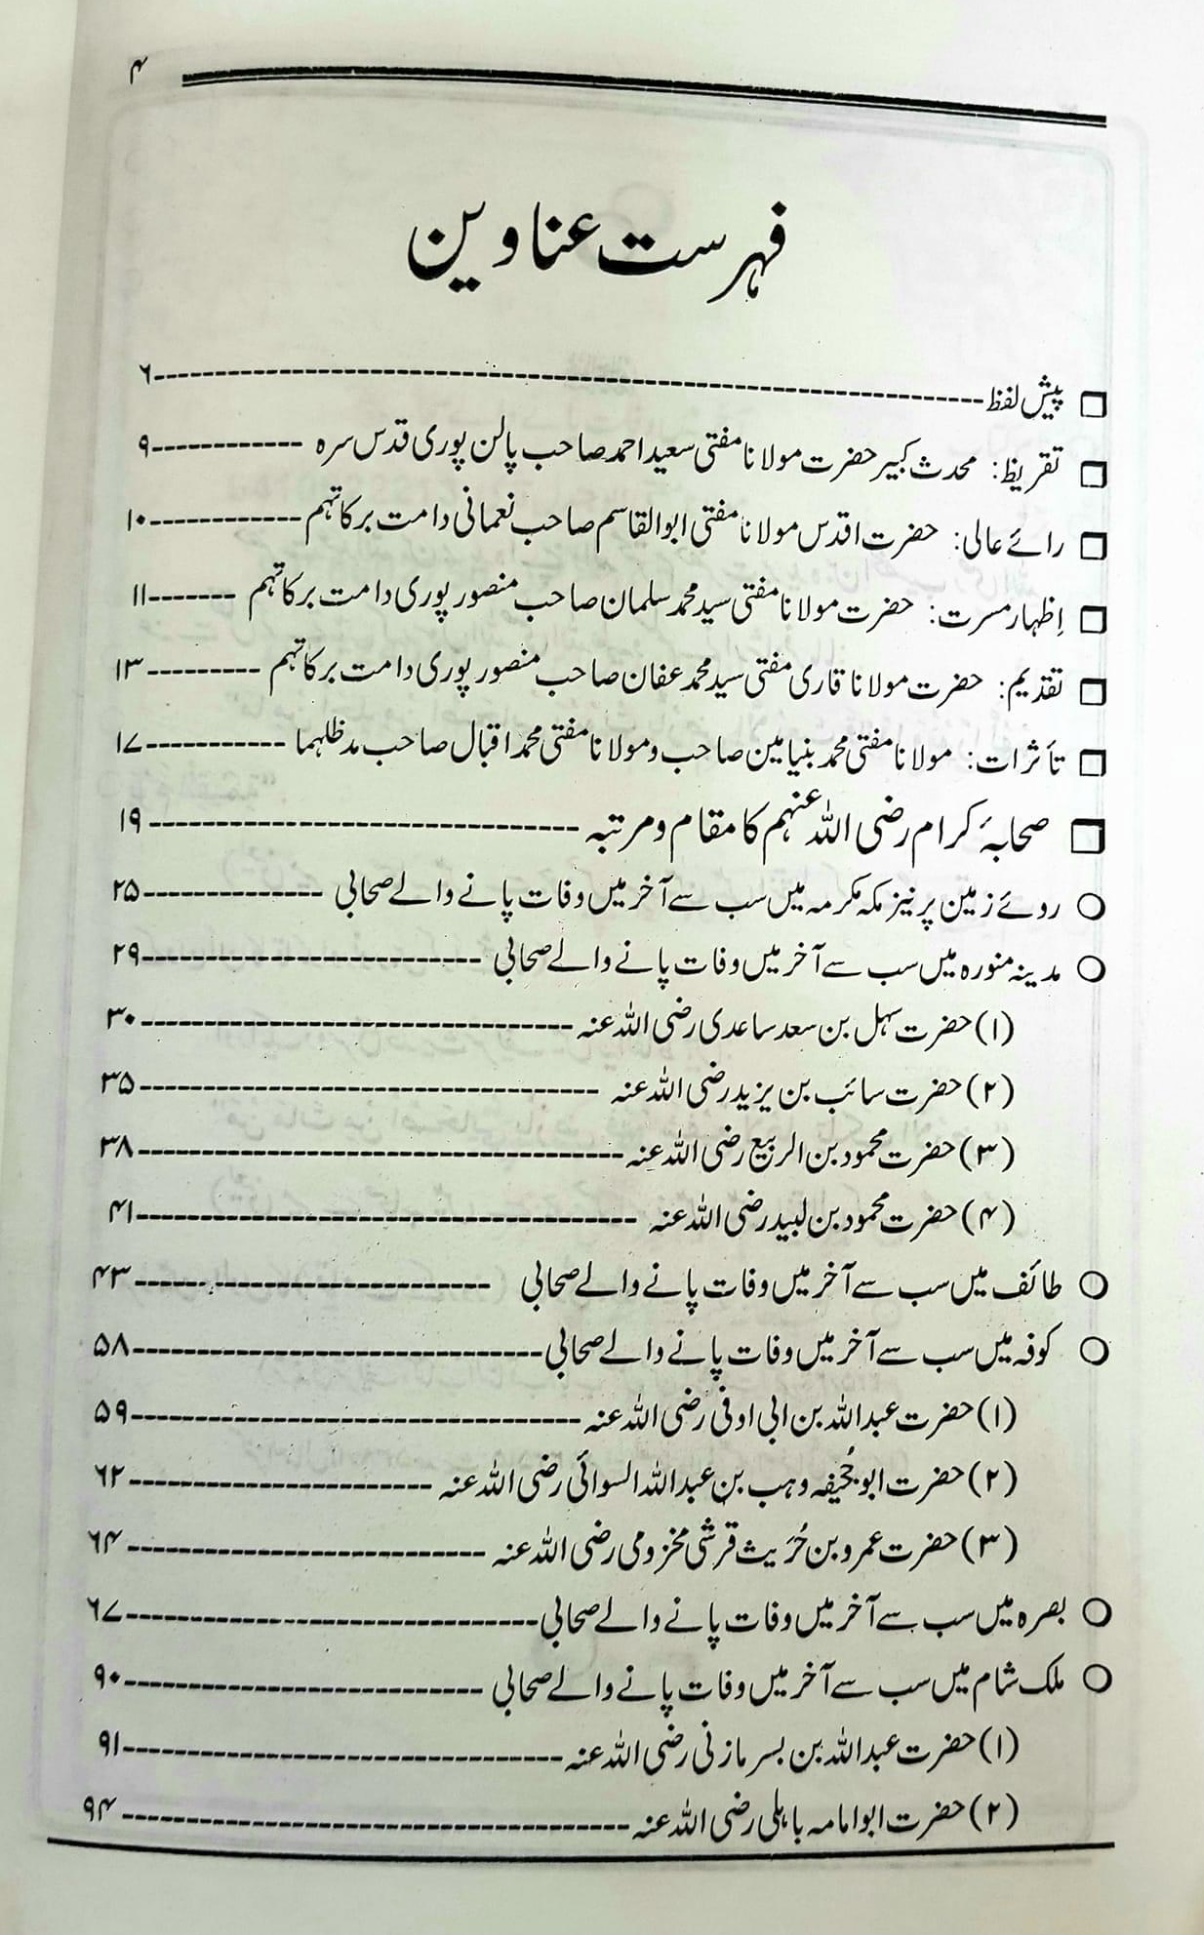 ۴
فہرست عناوین
❏ پیش لفظ ------------------------------ ۶
❏ تقریظ: محدث کبیر حضرت مولانا مفتی سعید احمد صاحب پالن پوری قدس سرہ ------------ ۹
❏ رائے عالی: حضرت اقدس مولانا مفتی ابوالقاسم صاحب نعمانی دامت برکاتہم ------------ ۱۰
❏ اِظہار مسرت: حضرت مولانا مفتی سید محمد سلمان صاحب منصور پوری دامت برکاتہم ------- ۱۱
❏ تقدیم: حضرت مولانا قاری مفتی سید محمد عفان صاحب منصور پوری دامت برکاتہم --------- ۱۳
❏ تأثرات: مولانا مفتی محمد بنیامین صاحب و مولانا مفتی محمد اقبال صاحب مدظلہما ----------- ۱۷
❏ صحابۂ کرام رضی اللہ عنہم کا مقام و مرتبہ ------------------------------ ۱۹
○ روئے زمین پر نیز مکہ مکرمہ میں سب سے آخر میں وفات پانے والے صحابی -------------- ۲۵
○ مدینہ منورہ میں سب سے آخر میں وفات پانے والے صحابی -------------------------- ۲۹
(۱) حضرت سہل بن سعد ساعدی رضی اللہ عنہ ------------------------------ ۳۰
(۲) حضرت سائب بن یزید رضی اللہ عنہ ------------------------------ ۳۵
(۳) حضرت محمود بن الربیع رضی اللہ عنہ ------------------------------ ۳۸
(۴) حضرت محمود بن لبید رضی اللہ عنہ ------------------------------ ۴۱
○ طائف میں سب سے آخر میں وفات پانے والے صحابی -------------------------- ۴۳
○ کوفہ میں سب سے آخر میں وفات پانے والے صحابی ------------------------------ ۵۸
(۱) حضرت عبداللہ بن ابی اوفی رضی اللہ عنہ ------------------------------ ۵۹
(۲) حضرت ابوجُحیفہ وہب بن عبداللہ السوائی رضی اللہ عنہ ----------------------- ۶۲
(۳) حضرت عمرو بن حُرَیث قرشی مخزومی رضی اللہ عنہ -------------------------- ۶۴
○ بصرہ میں سب سے آخر میں وفات پانے والے صحابی ------------------------------ ۶۷
○ ملک شام میں سب سے آخر میں وفات پانے والے صحابی -------------------------- ۹۰
(۱) حضرت عبداللہ بن بسر مازنی رضی اللہ عنہ ------------------------------ ۹۱
(۲) حضرت ابوامامہ باہلی رضی اللہ عنہ ------------------------------ ۹۴